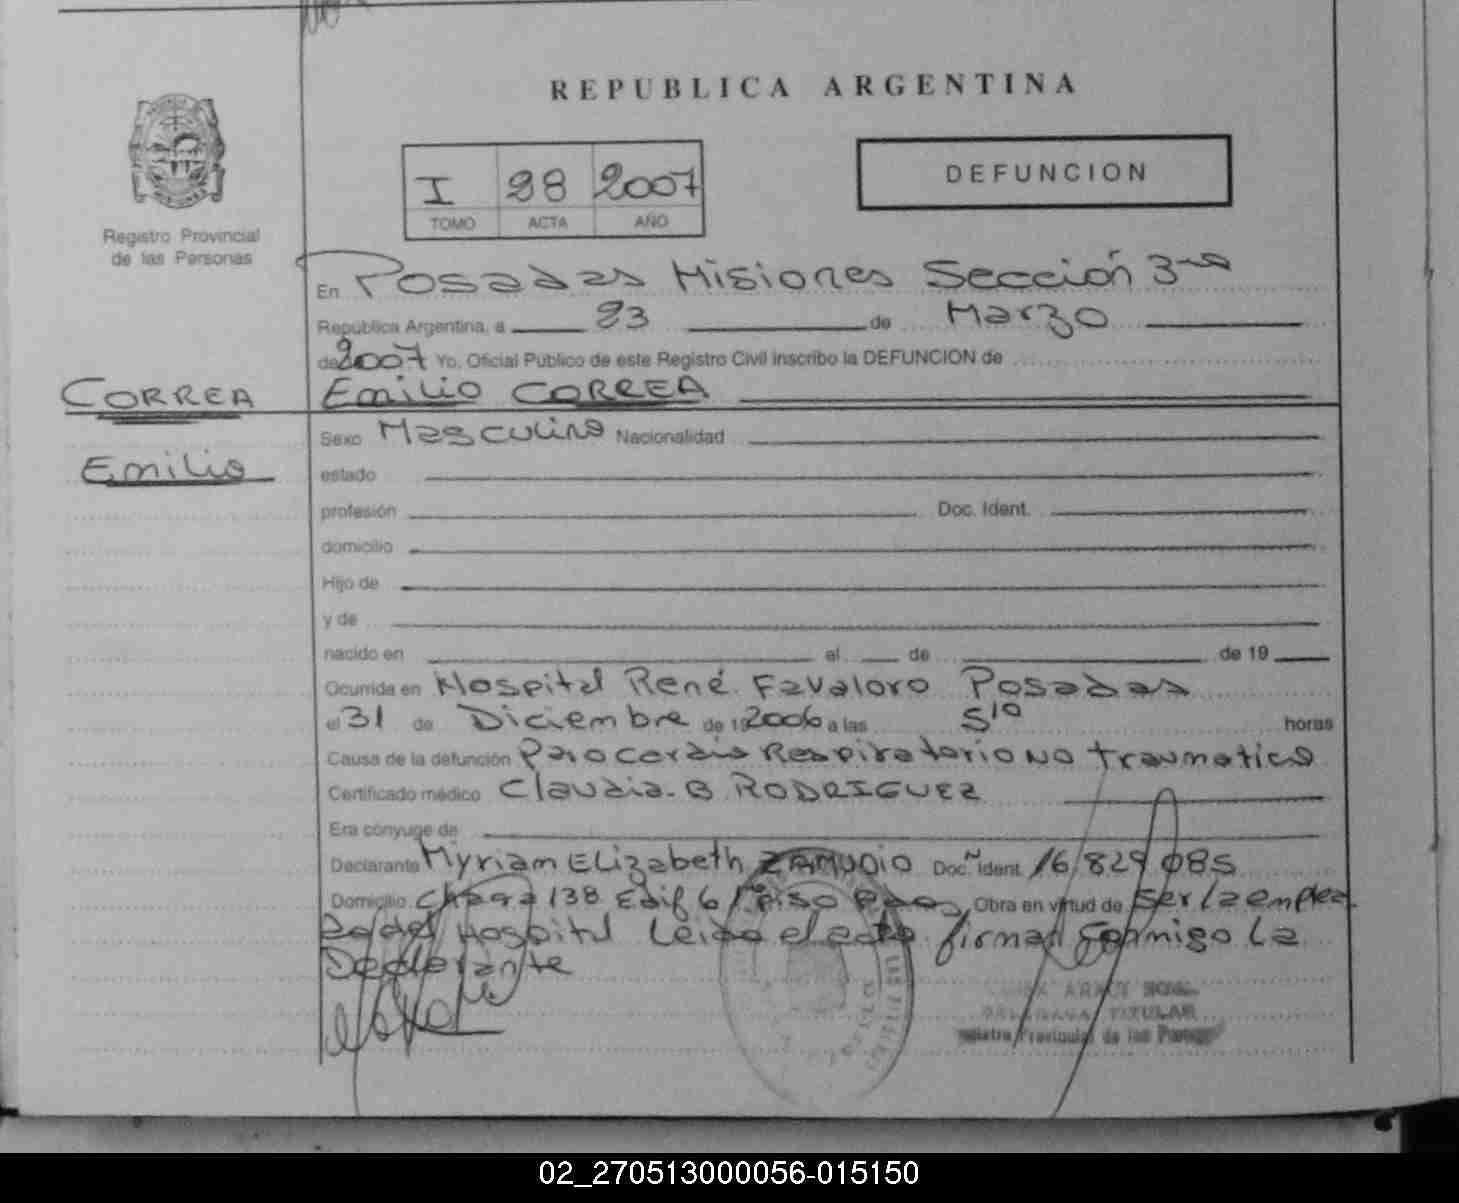 REPUBLICA ARGENTINA
DEFUNCION
I 28 2007
TOMO ACTA AÑO
Registro Provincial
de las Personas
En Posadas Misiones Sección 3ra
República Argentina, a 23 de Marzo
de 2007 Yo, Oficial Público de este Registro Civil inscribo la DEFUNCION de
CORREA Emilio CORREA
Sexo Masculino Nacionalidad
Emilio
estado
profesión Doc. Ident.
domicilio
Hijo de
y de
nacido en el de de 19
Ocurrida en Hospital René Favaloro Posadas
el 31 de Diciembre de 19 2006 a las 5 10 horas
Causa de la defunción Paro Cardio Respiratorio No traumatico
Certificado médico Claudia B RODRIGUEZ
Era cónyuge de
Declarante Myriam Elizabeth ZAMUDIO Doc. Ident. 16.829.085
Domicilio Chacra 138 Edif 6 1º piso Pdas Obra en virtud de ser la emplea
da del Hospital Leida el acta firman conmigo la
Declarante
TITULAR
Registro Provincial de las Personas
02_270513000056-015150